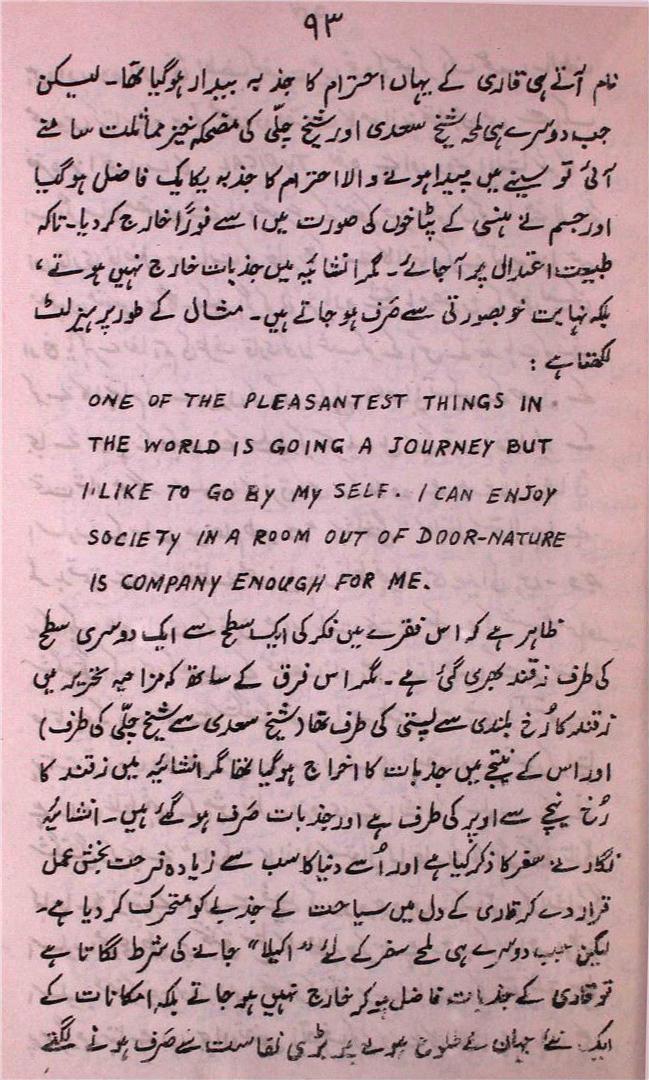 ۹۳
نام آتے ہی قاری کے یہاں احترام کا جذبہ بیدار ہوگیا تھا۔ لیکن
جب دوسرے ہی لمحہ شیخ سعدی اور شیخ چلّی کی مضحکہ خیز مماثلت سامنے
آئی تو سینے میں پیدا ہونے والا احترام کا جذبہ یکایک فاضل ہوگیا
اور جسم نے ہنسی کے پٹاخوں کی صورت میں اسے فوراً خارج کر دیا۔ تاکہ
طبیعت اعتدال پر آ جائے۔ مگر انشائیہ میں جذبات خارج نہیں ہوتے،
بلکہ نہایت خوبصورتی سے صَرف ہو جاتے ہیں۔ مثال کے طور پر ہیزلٹ
لکھتا ہے :
ONE OF THE PLEASANTEST THINGS IN
THE WORLD IS GOING A JOURNEY BUT
I LIKE TO GO BY MY SELF. I CAN ENJOY
SOCIETY IN A ROOM OUT OF DOOR-NATURE
IS COMPANY ENOUGH FOR ME.
ظاہر ہے کہ اس فقرے میں فکر کی ایک سطح سے ایک دوسری سطح
کی طرف زقند بھری گئی ہے۔ مگر اس فرق کے ساتھ کہ مزاحیہ تحریر میں
زقند کا رُخ بلندی سے پستی کی طرف تھا (شیخ سعدی سے شیخ چلّی کی طرف)
اور اس کے نتیجے میں جذبات کا اخراج ہوگیا تھا مگر انشائیہ میں زقند کا
رُخ نیچے سے اوپر کی طرف ہے اور جذبات صَرف ہو گئے ہیں۔ انشائیہ
نگار نے سفر کا ذکر کیا ہے اور اُسے دنیا کا سب سے زیادہ فرحت بخش عمل
قرار دے کر قاری کے دل میں سیاحت کے جذبے کو متحرک کر دیا ہے۔
لیکن جب دوسرے ہی لمحے سفر کے لئے "اکیلا" جانے کی شرط لگاتا ہے
تو قاری کے جذبات فاضل ہو کر خارج نہیں ہو جاتے بلکہ امکانات کے
ایک نئے جہان کے طلوع ہونے پر بڑی نفاست سے صَرف ہونے لگتے